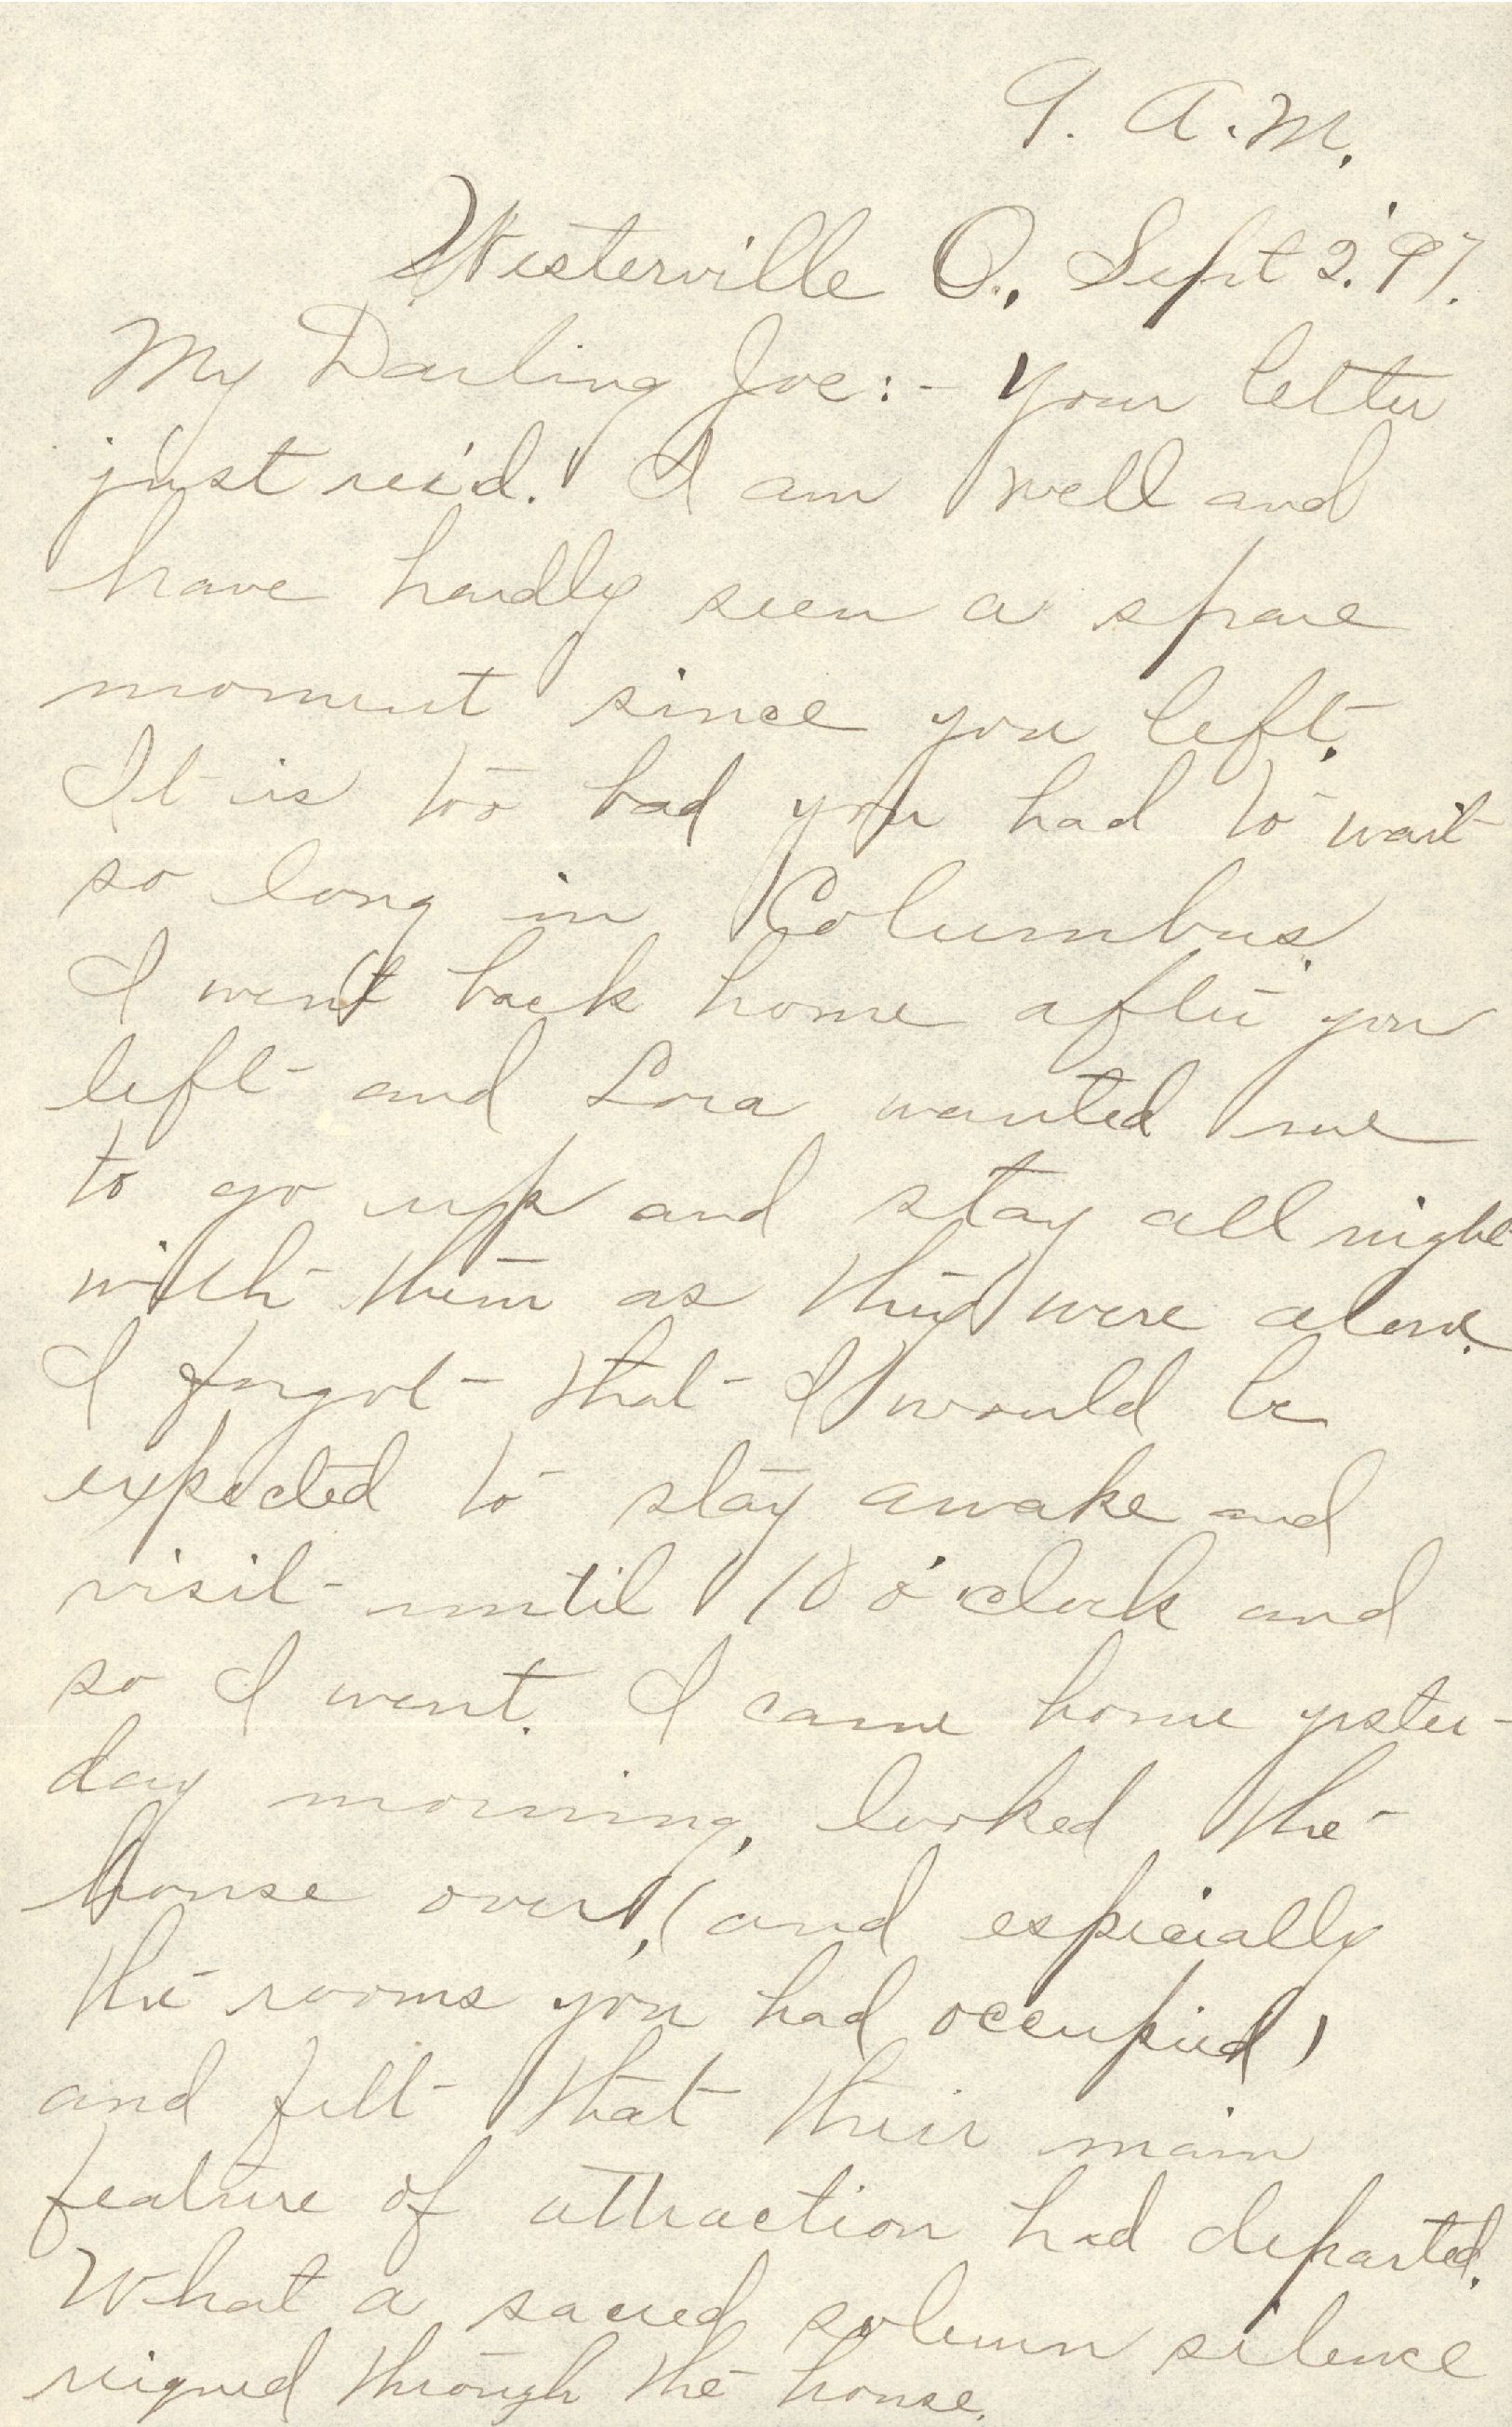 9. A.M.
Westerville O., Sept 2. '97.
My Darling Joe:- Your letter
just rec'd. I am well and
have hardly seen a spare
moment since you left.
It is too bad you had to wait
so long in Columbus.
I went back home after you
left and Lora wanted me
to go up and stay all night
with them as they were alone.
I forgot that I would be
expected to stay awake and
visit until 10 o'clock and
so I went. I came home yester-
day morning, looked the
house over, (and especially
the rooms you had occupied)
and felt that their main
feature of attraction had departed.
What a sacred solemn silence
reigned through the house.